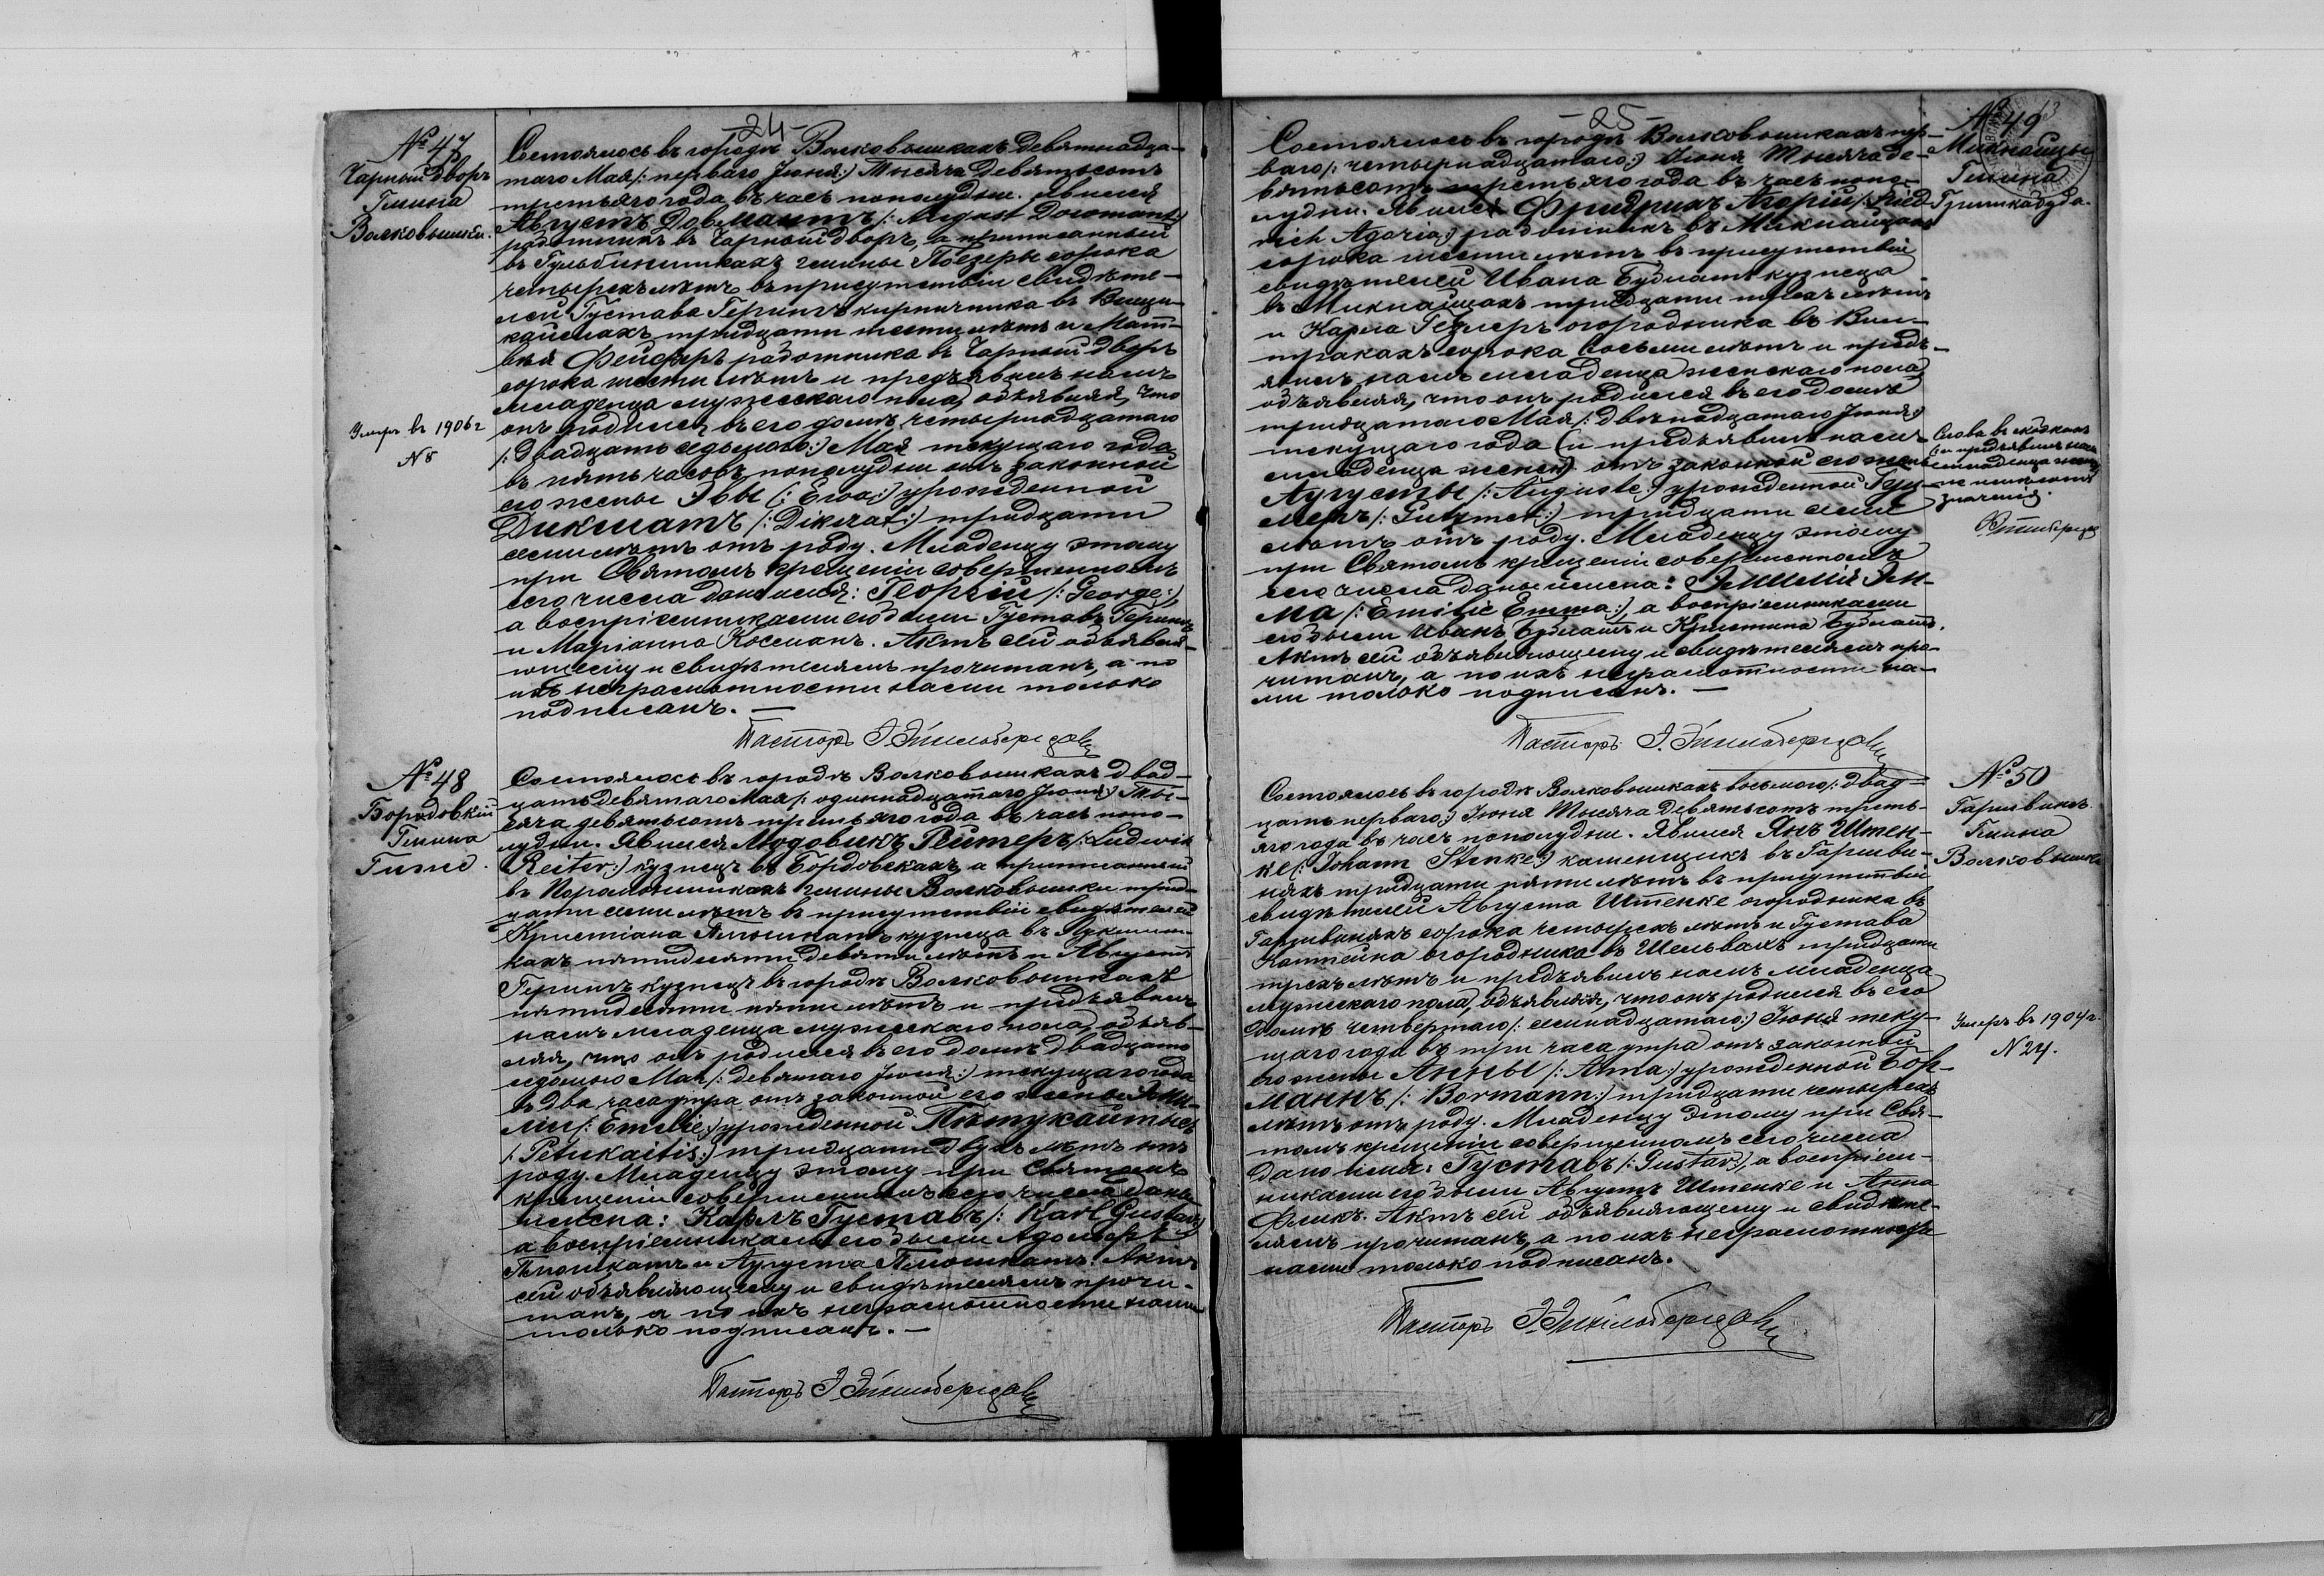 -24-
№ 47
Чарный дворъ
Гмина
Волковышки.
Состоялось въ городѣ Волковышкахъ девятнадца-
таго Мая /: перваго Іюня:/ Тысяча девятьсотъ
третьяго года въ часъ пополудни. Явился
Августъ Довмантъ /: August Dowmant:/
работникъ въ Чарный дворъ, а приписанный
въ Гульбинишкахъ гмины Поезеры сорока
четырехъ лѣтъ въ присутствіи свидѣте-
лей Густава Герингъ кирпичника въ
каймахъ тридцати шести лѣтъ и Мат-
вѣя Фейферъ работника въ Чарный дворъ
сорока шести лѣтъ и предъявилъ намъ
младенца мужескаго пола, объявляя, что
онъ родился въ его домѣ четырнадцатаго
/: двадцать седьмого:/ Мая текущаго года
въ пять часовъ пополудни отъ законной
его жены Эвы /: Ewa:/ урожденной
Дикшатъ /: Dikszat:/ тридцати
семи лѣтъ отъ роду. Младенцу этому
при Святомъ Крещеніи совершенномъ
сего числа дано имя: Георгій /: George:/,
а воспріемниками его были Густавъ Герингъ
и Маріанна Косманъ. Актъ сей объявля-
ющему и свидѣтелямъ прочитанъ, а по
ихъ неграмотности нами только
подписанъ. —
Пасторъ
Умеръ въ 1906 г
N 8
№ 48
Бордовскій
Гмина
Гижс.
Состоялось въ городѣ Волковышкахъ двад-
цать девятаго Мая /: одиннадцатаго Іюня:/ Ты-
сяча девятьсотъ третьяго года въ часъ попо-
лудни. Явился Людовикъ Рейтеръ /: Ludwik
Reiter:/ кузнецъ въ Бордовскахъ, а приписанный
въ гмины Волковышки трид-
цати семи лѣтъ въ присутствіи свидѣтелей
Кристіана Плюшкатъ кузнеца въ
кахъ пятидесяти девяти лѣтъ и Августъ
Герингъ кузнецъ въ городѣ Волковышкахъ
пятидесяти пяти лѣтъ и предъявилъ
намъ младенца мужескаго пола, объяв-
ляя, что онъ родился въ его домѣ двадцать
седьмого Мая /: девятаго Іюня:/ текущаго года
въ два часа утра отъ законной его жены Эми-
ліи /: Emilie:/ урожденной Пѣтукайтисъ
/: Petukaitis:/ тридцати двухъ лѣтъ отъ
роду. Младенцу этому при Святомъ
крещеніи совершенномъ сего числа даны
имена: Карлъ Густавъ /: Karl Gustav:/
а воспріемниками его были Адольфъ
Плюшкатъ и Августа Плюшкатъ. Актъ
сей объявляющему и свидѣтелямъ прочи-
танъ, а по ихъ неграмотности нами
только подписанъ. —
Пасторъ
-25-
13
№ 49
Микнайцы
Гмина
Гришкабуда.
Состоялось въ городѣ Волковышкахъ пер-
ваго /: четырнадцатаго:/ Іюня Тысяча де-
вятьсотъ третьяго года въ часъ попо-
лудни. Явился Фридрихъ Агорій /: Fried-
rich Agoria:/ работникъ въ Микнайцахъ
сорока шести лѣтъ въ присутствіи
свидѣтелей Ивана Будматъ кузнеца
въ Микнайцахъ тридцати трехъ лѣтъ
и Карла Гезлеръ огородника въ Вин-
тракахъ сорока восьми лѣтъ и предъ-
явилъ намъ младенца женскаго пола,
объявляя, что онъ родился въ его домѣ
тридцатаго Мая /: двѣнадцатаго Іюня:/
текущаго года (и предъявилъ намъ
младенца женск) отъ законной его жены
Аугусты /: Auguste:/ урожденной Гуц-
меръ /: :/ тридцати семи
лѣтъ отъ роду. Младенцу этому
при Святомъ крещеніи совершенномъ
сего числа даны имена: Эмилія Эм-
ма /: Emilie Emma:/, а воспріемниками
его были Иванъ Будматъ и Кристина Будматъ.
Актъ сей объявляющему и свидѣтелямъ про-
читанъ, а по ихъ неграмотности на-
ми только подписанъ. —
Пасторъ
Слова въ скобкахъ
(:и предъявилъ намъ
младенца женск:)
не имѣютъ
значенія.
№ 50
Гаршвине
Гмина
Волковышки
Состоялось въ городѣ Волковышкахъ восьмого /: двад-
цать перваго:/ Іюня Тысяча девятьсотъ треть-
яго года въ часъ пополудни. Явился Янъ Штен-
ке /: Johann Stenke:/ каменщикъ въ Гаршви-
няхъ тридцати пяти лѣтъ въ присутствіи
свидѣтелей Августа Штенке огородника въ
Гаршвиняхъ сорока четырехъ лѣтъ и Густава
Каптейна огородника въ Шельвахъ тридцати
трехъ лѣтъ и предъявилъ намъ младенца
мужескаго пола, объявляя, что онъ родился въ его
домѣ четвертаго /: семнадцатаго:/ Іюня теку-
щаго года въ три часа утра отъ законной
его жены Анны /: Anna:/ урожденной Бор-
маннъ /: Bormann:/ тридцати четырехъ
лѣтъ отъ роду. Младенцу этому при Свя-
томъ крещеніи совершенномъ сего числа
дано имя: Густавъ /: Gustav:/, а воспріем-
никами его были Августъ Штенке и Анна
Фликъ. Актъ сей объявляющему и свидѣте-
лямъ прочитанъ, а по ихъ неграмотности
нами только подписанъ.
Пасторъ
Умеръ въ 1904 г.
N 24.